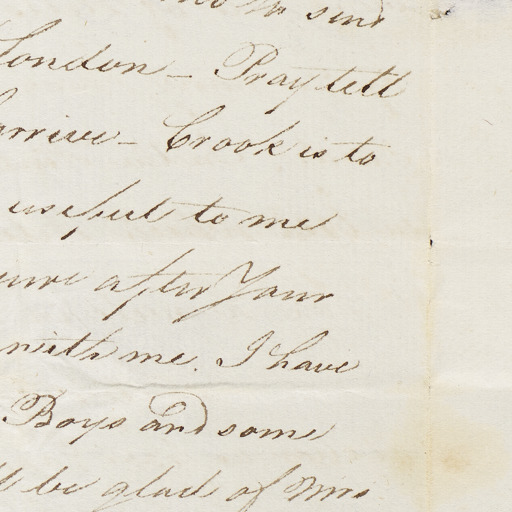 to send
London - Pray tell
arrive - Crook is to
useful to me
after Your
with me. I have
Boys and some
be glad of Mrs